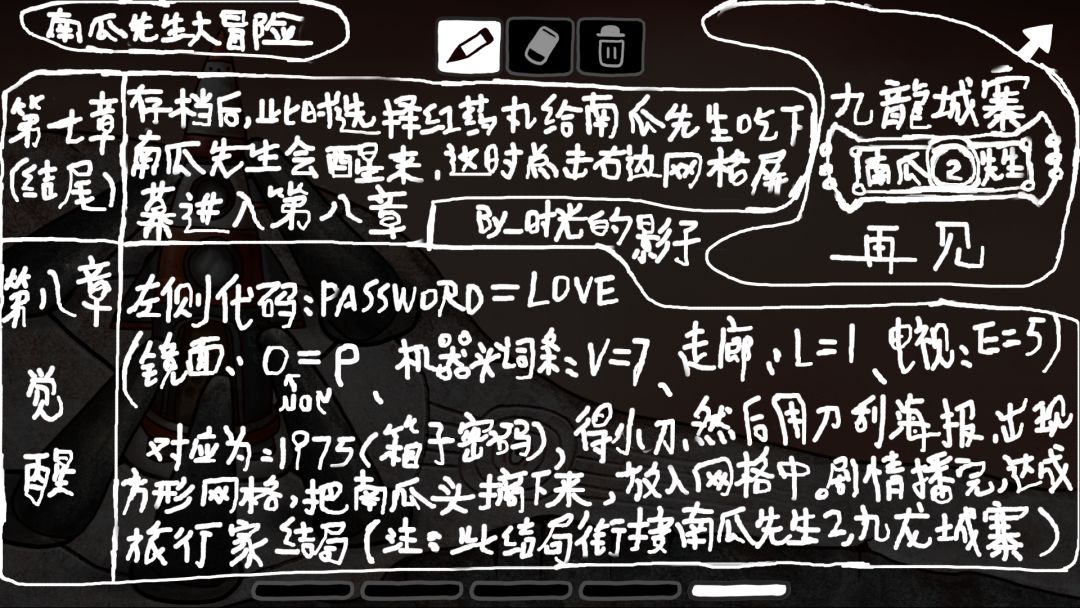 南瓜先生大冒险
第七章
(结尾)
存档后,此时选择红药丸给南瓜先生吃下
南瓜先生会醒来,这时点击右边网格屏
幕进入第八章
By_时光的影子
九龍城寨
南瓜2先生
再见
第八章
觉
醒
左侧代码:PASSWORD=LOVE
(镜面:O=P、机器光词条:V=7、走廊:L=1、电视:E=5)
对应为:1975(箱子密码),得小刀,然后用刀刮海报,出现
方形网格,把南瓜头摘下来,放入网格中。剧情播完,达成
旅行家结局(注:此结局衔接南瓜先生2,九龙城寨)